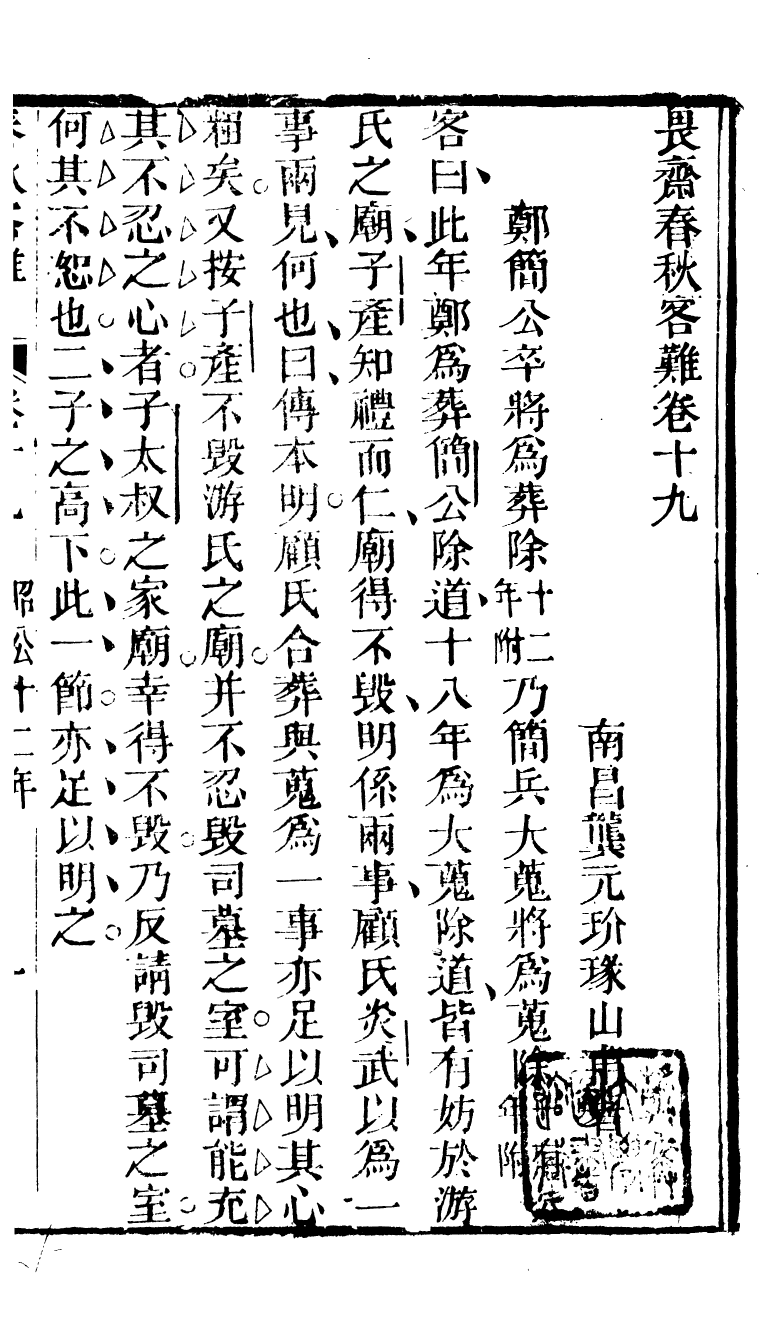 畏齋春秋客難卷十九
南昌龔元玠瑑山
鄭簡公卒將爲葬除十二年附乃簡兵大蒐將爲蒐除年附
客曰此年鄭爲葬簡公除道十八年爲大蒐除道皆有妨於游
氏之廟子產知禮而仁廟得不毀明係兩事顧氏炎武以爲一
事兩見何也曰傳本明顧氏合葬與蒐爲一事亦足以明其心
粗矣又按子產不毀游氏之廟并不忍毀司墓之室可謂能充
其不忍之心者子太叔之家廟幸得不毀乃反請毀司墓之室
何其不恕也二子之高下此一節亦足以明之
春秋客難 卷十九 昭公十二年 一